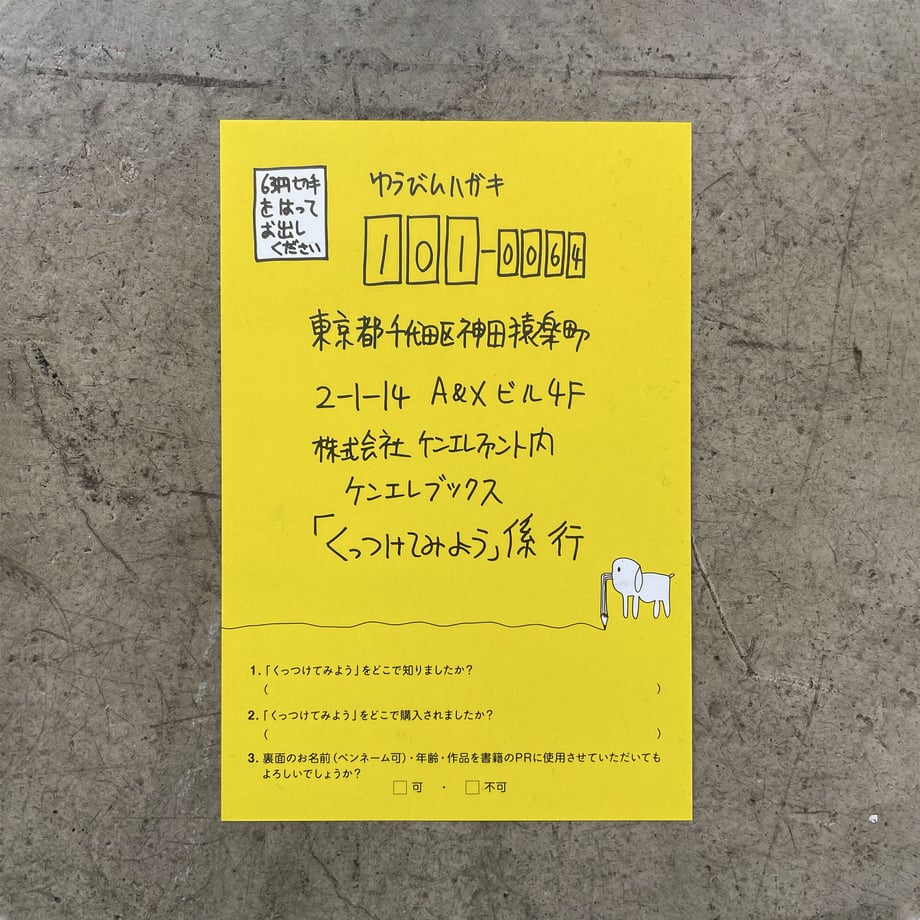 63円切手
をはって
お出し
ください
ゆうびんハガキ
101-0064
東京都千代田区神田猿楽町
2-1-14 A&X ビル4F
株式会社 ケンエレファント内
ケンエレブックス
「くっつけてみよう」係 行
1.「くっつけてみよう」をどこで知りましたか?
( )
2.「くっつけてみよう」をどこで購入されましたか?
( )
3. 裏面のお名前(ペンネーム可)・年齢・作品を書籍のPRに使用させていただいても
よろしいでしょうか?
□ 可 ・ □ 不可